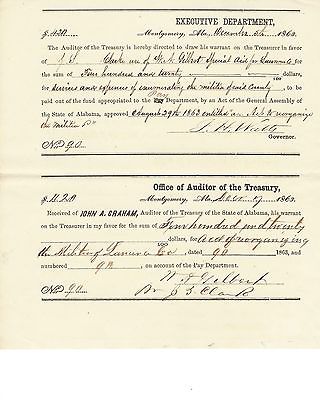 EXECUTIVE DEPARTMENT,
$ 420 Montgomery, Ala., December 5th 1863.
The Auditor of the Treasury is hereby directed to draw his warrant on the Treasurer in favor
of J. S. Clark use of W. F. Gilbert Special Aid for Lawrence Co for the
sum of Four hundred and twenty dollars, for
services and expenses of enumerating the militia of said County to be
paid out of the fund appropriated to the Pay Department, by an Act of the General Assembly
of the State of Alabama, approved August 29th 1863 entitled an Act to reorganize
the militia &c
T. H. Watts
Governor.
No. 90.
Office of Auditor of the Treasury,
$ 420 Montgomery, Ala., 1863.
Received of JOHN A. GRAHAM, Auditor of the Treasury of the State of Alabama, his warrant
on the Treasurer in my favor for the sum of Four hundred and twenty
/100 dollars, for acct of reorganizing
the Militia of Lawrence Co dated 1863, and
numbered 90 on account of the Pay Department.
W F Gilbert
No. 90 By J S Clark